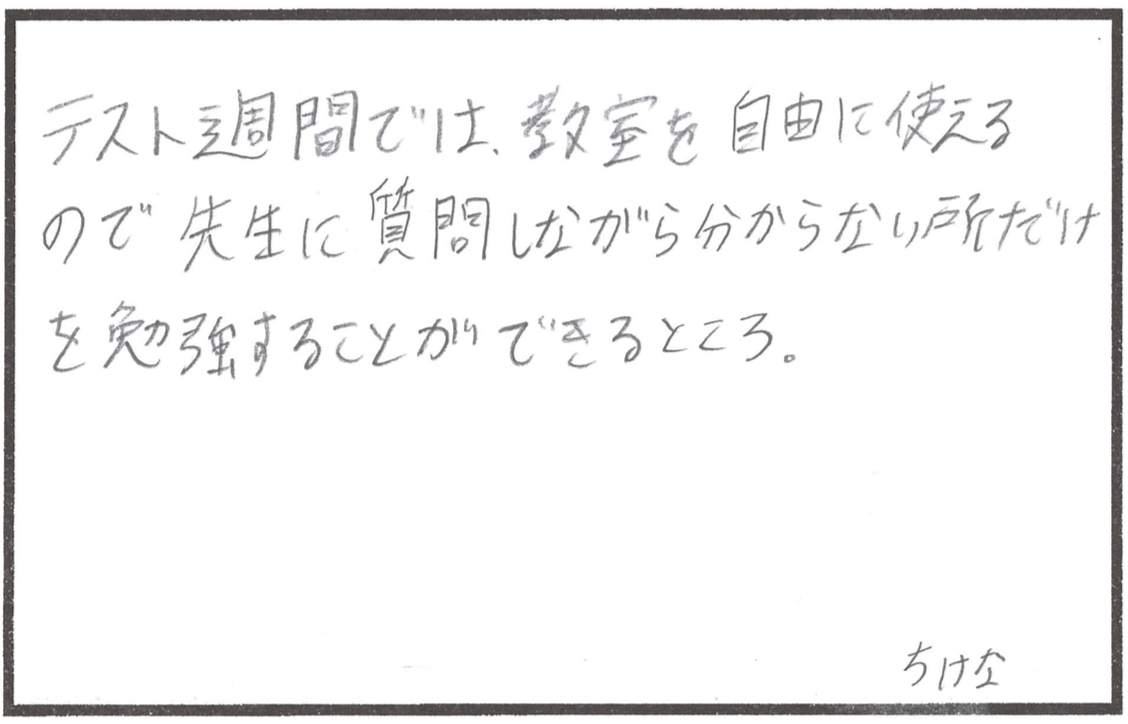 テスト週間では、教室を自由に使える
ので先生に質問しながら分からない所だけ
を勉強することができるところ。
ちけな